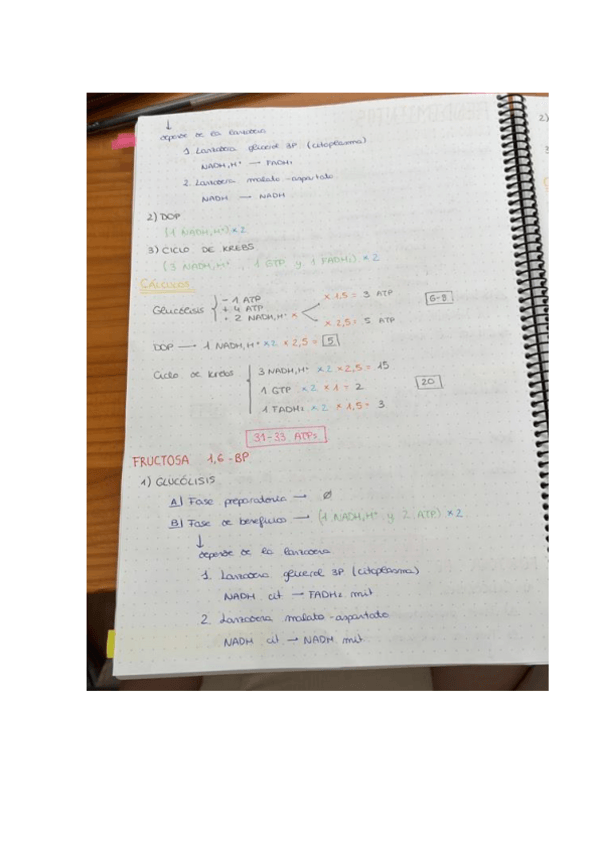 ↓
depende de la lanzadera
1. Lanzadera glicerol 3P (citoplasma)
NADH, H⁺ → FADH₂
2. Lanzadera malato-aspartato
NADH → NADH
2) DOP
(1 NADH, H⁺) x2
3) CICLO DE KREBS
(3 NADH, H⁺, 1 GTP y 1 FADH₂) x2
CÁLCULOS
Glucólisis { - 1 ATP
+ 4 ATP
+ 2 NADH, H⁺ x
x 1,5 = 3 ATP
x 2,5 = 5 ATP
6-8
DOP → 1 NADH, H⁺ x2 x 2,5 = 5
Ciclo de Krebs { 3 NADH, H⁺ x2 x 2,5 = 15
1 GTP x2 x 1 = 2
1 FADH₂ x2 x 1,5 = 3
20
31-33 ATPs
FRUCTOSA 1,6-BP
1) GLUCÓLISIS
A) Fase preparatoria → Ø
B) Fase de beneficios → (1 NADH, H⁺ y 2 ATP) x2
↓
depende de la lanzadera
1. Lanzadera glicerol 3P (citoplasma)
NADH cit → FADH₂ mit
2. Lanzadera malato-aspartato
NADH cit → NADH mit
2)